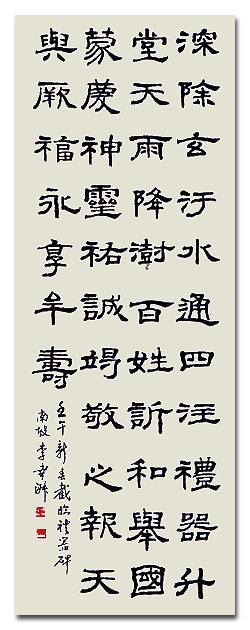 深除玄汙水通四注禮器升
堂天雨降澍百姓訢和舉國
蒙慶神靈祐誠竭敬之報天
與厥福永享牟壽
壬午新春截臨禮器碑
南坡李